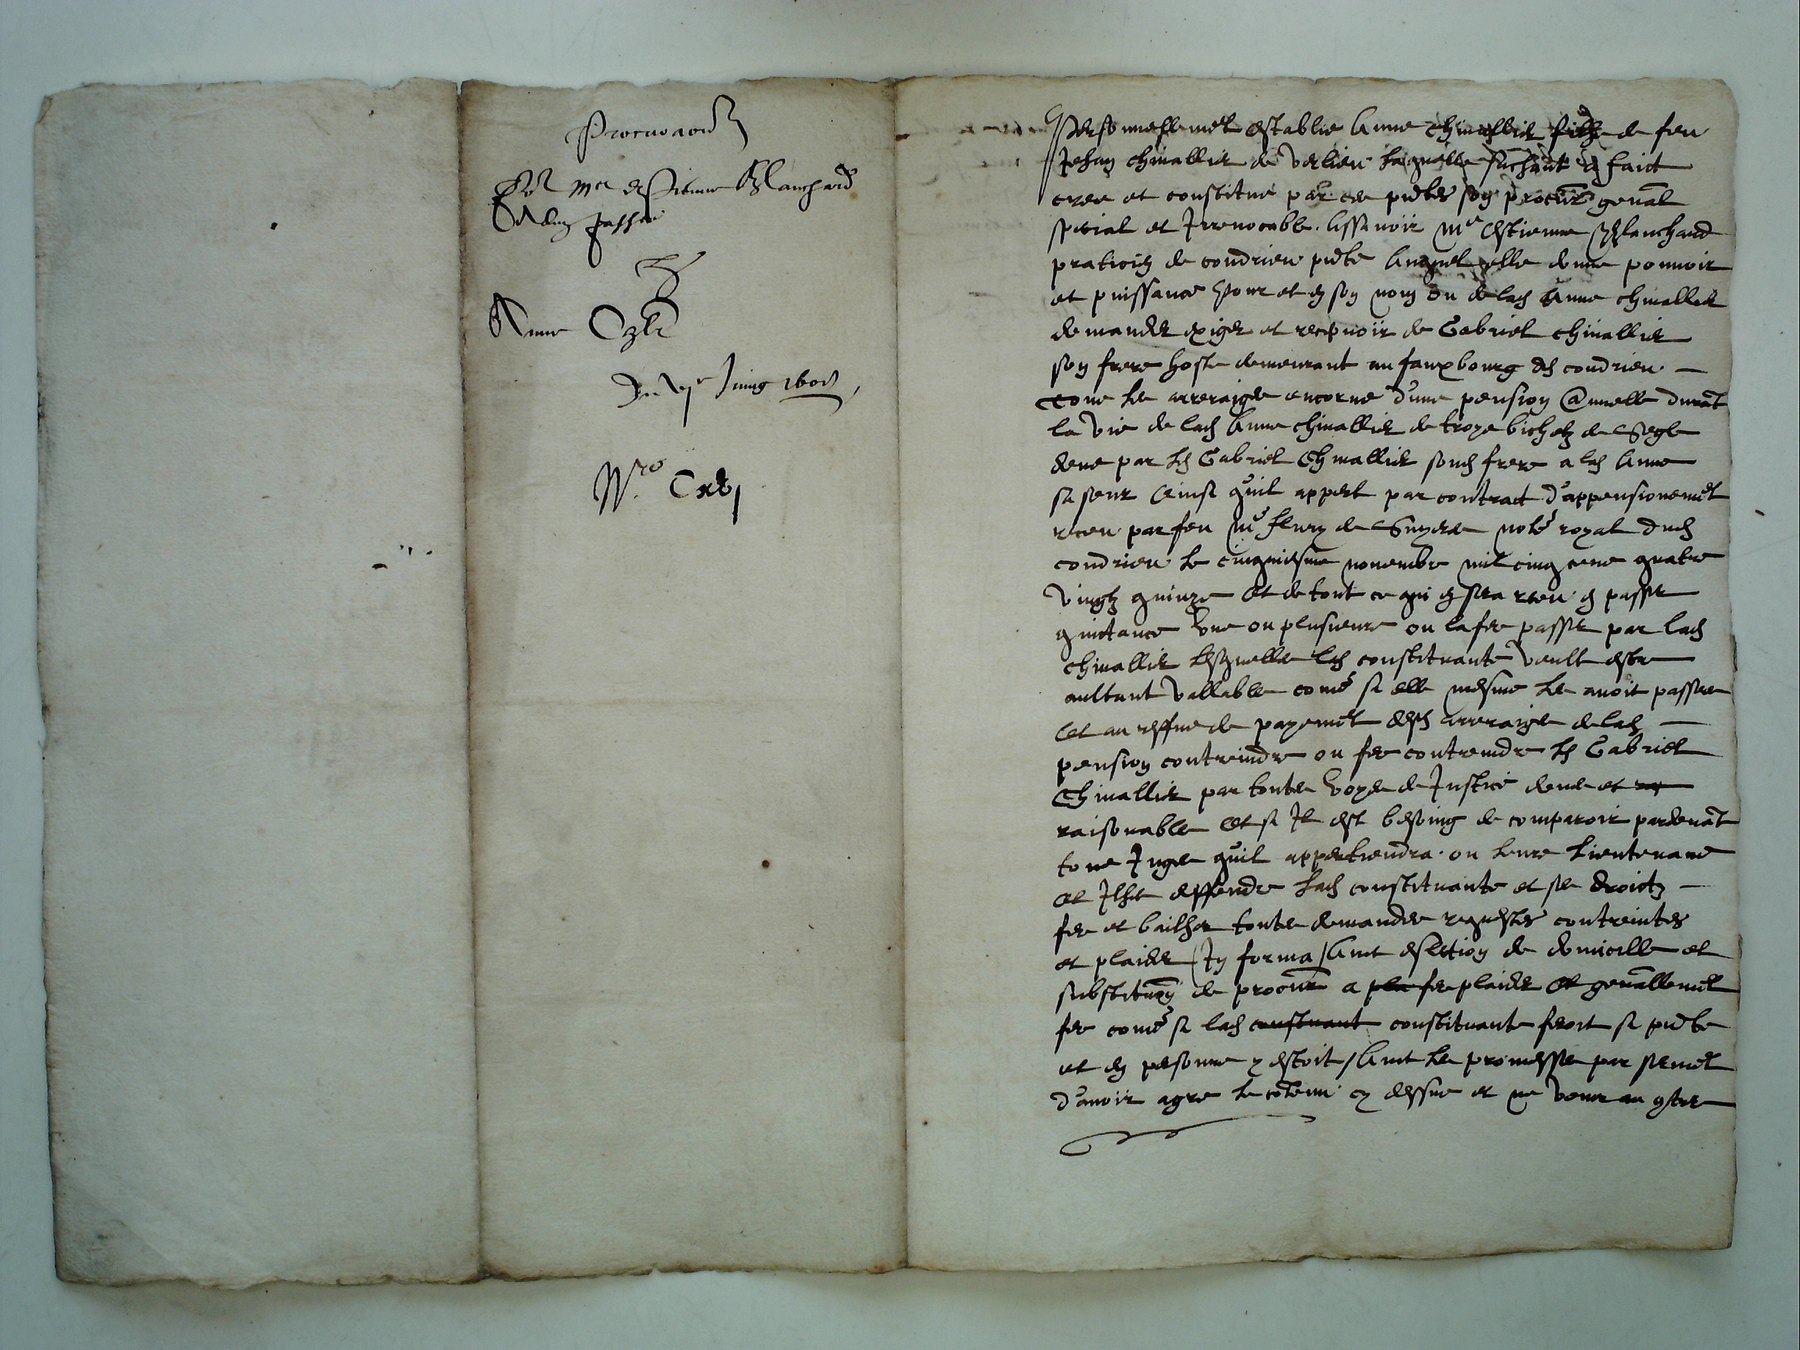 Procuraon
Por Mre Estienne Blanchard
Anne
Du vje Juing 160
N.ro
Personnellemet establie Anne Chivallier filhe de feu
Jehan chivallier de Verlieu laquelle sachant et faict
cree et constitue par ces pntes son procur genal
special et Irrevocable assavoir Me Estienne Blanchard
praticien de condrieu pnte auquel elle donne pouvoir
et puissance pour et en son nom de lad Anne chivallier
demander exiger et recepvoir de Gabriel chivallier
son frere hoste demeurant au fauxbourg de condrieu
tous les arreraiges encorus d'une pension annuelle durat
la vie de lad Anne chivallier de troys bichetz de segle
deue par led Gabriel Chivallier sond frere a lad Anne
sa seur Ainsi quil appert par contract d'appensionemet
receu par feu Me fleury de notre royal dud
condrieu le cinquiesme novembre mil cinq cens quatre
vingtz quinze Et de tout ce qui en sera receu en passer
quictance Une ou plusieurs ou la fere passer par lad
chivallier lesquelles lad constituante veult estre
aultant vallables come si elle mesme les avoit passees
Et au reffus de payemet desd arreraiges de lad
pension contreindre ou fere contreindre led Gabriel
Chivallier par toutes voyes de Justice deues et
raisonables Et si Il est besoing de comparoir pardevat
tous Juges quil appertiendra ou leurs lieutenans
et Illec deffendre lad constituante et ses droictz
fere et bailher toutes demandes requestes contreintes
et plaider In forma Avec eslection de domicille et
substituon de procur a fere plaider Et genallemet
fere come si lad constuant constituante feroit si pnte
et en personne y estoit / Avec les promesses par sermet
d'avoir agre le contenu cy dessus et ne venir au contre